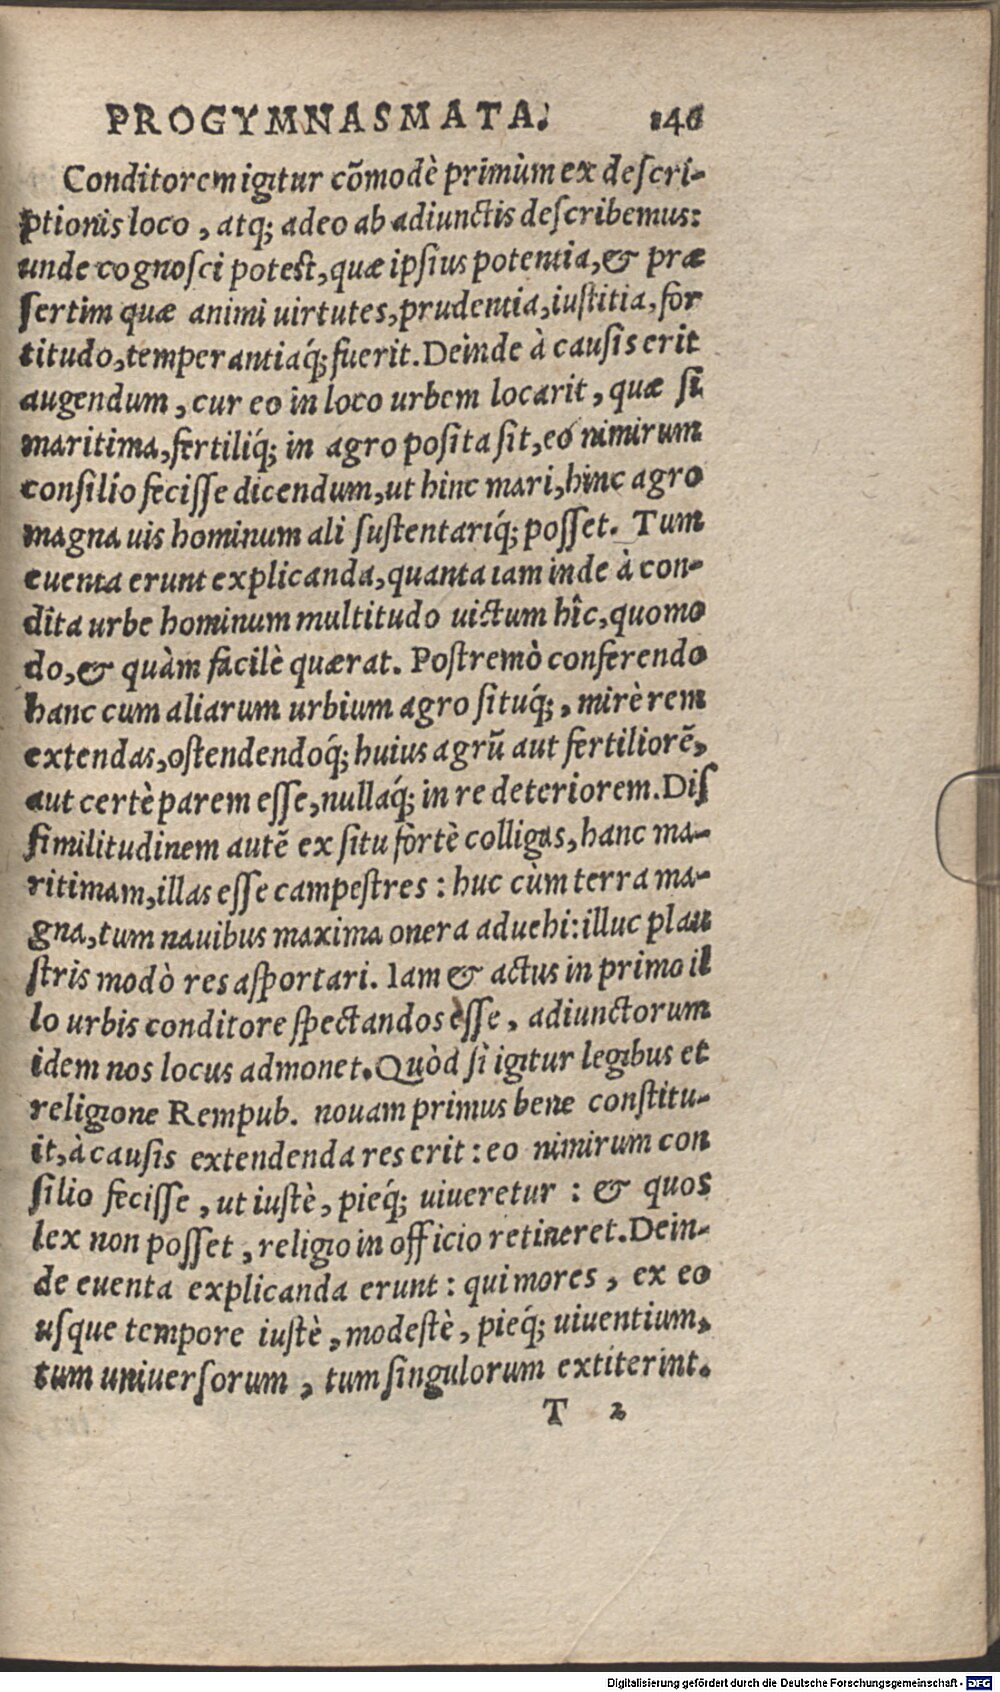 PROGYMNASMATA. 146
Conditorem igitur cõmodè primùm ex descri-
ptionis loco, atq; adeo ab adiunctis describemus:
unde cognosci potest, quæ ipsius potentia, & præ
sertim quæ animi uirtutes, prudentia, iustitia, for
titudo, temperantiaq́; fuerit. Deinde à causis erit
augendum, cur eo in loco urbem locarit, quæ si
maritima, fertiliq́; in agro posita sit, eo nimirum
consilio fecisse dicendum, ut hinc mari, hinc agro
magna uis hominum ali sustentariq́; posset. Tum
euenta erunt explicanda, quanta iam inde à con-
dita urbe hominum multitudo uictum hîc, quomo
do, & quàm facilè quærat. Postremò conferendo
hanc cum aliarum urbium agro situq́;, mirè rem
extendas, ostendendoq́; huius agrũ aut fertiliorẽ,
aut certè parem esse, nullaq́; in re deteriorem. Dis
similitudinem autẽ ex situ fortè colligas, hanc ma-
ritimam, illas esse campestres : huc cùm terra ma-
gna, tum nauibus maxima onera aduehi: illuc plau
stris modò res asportari. Iam & actus in primo il
lo urbis conditore spectandos esse, adiunctorum
idem nos locus admonet. Quòd si igitur legibus et
religione Rempub. nouam primus bene constitu-
it, à causis extendenda res erit : eo nimirum con
silio fecisse, ut iustè, pieq́; uiueretur : & quos
lex non posset, religio in officio retineret. Dein-
de euenta explicanda erunt : qui mores, ex eo
usque tempore iustè, modestè, pieq́; uiuentium,
tum uniuersorum, tum singulorum extiterint.
T 2
Digitalisierung gefördert durch die Deutsche Forschungsgemeinschaft - DFG